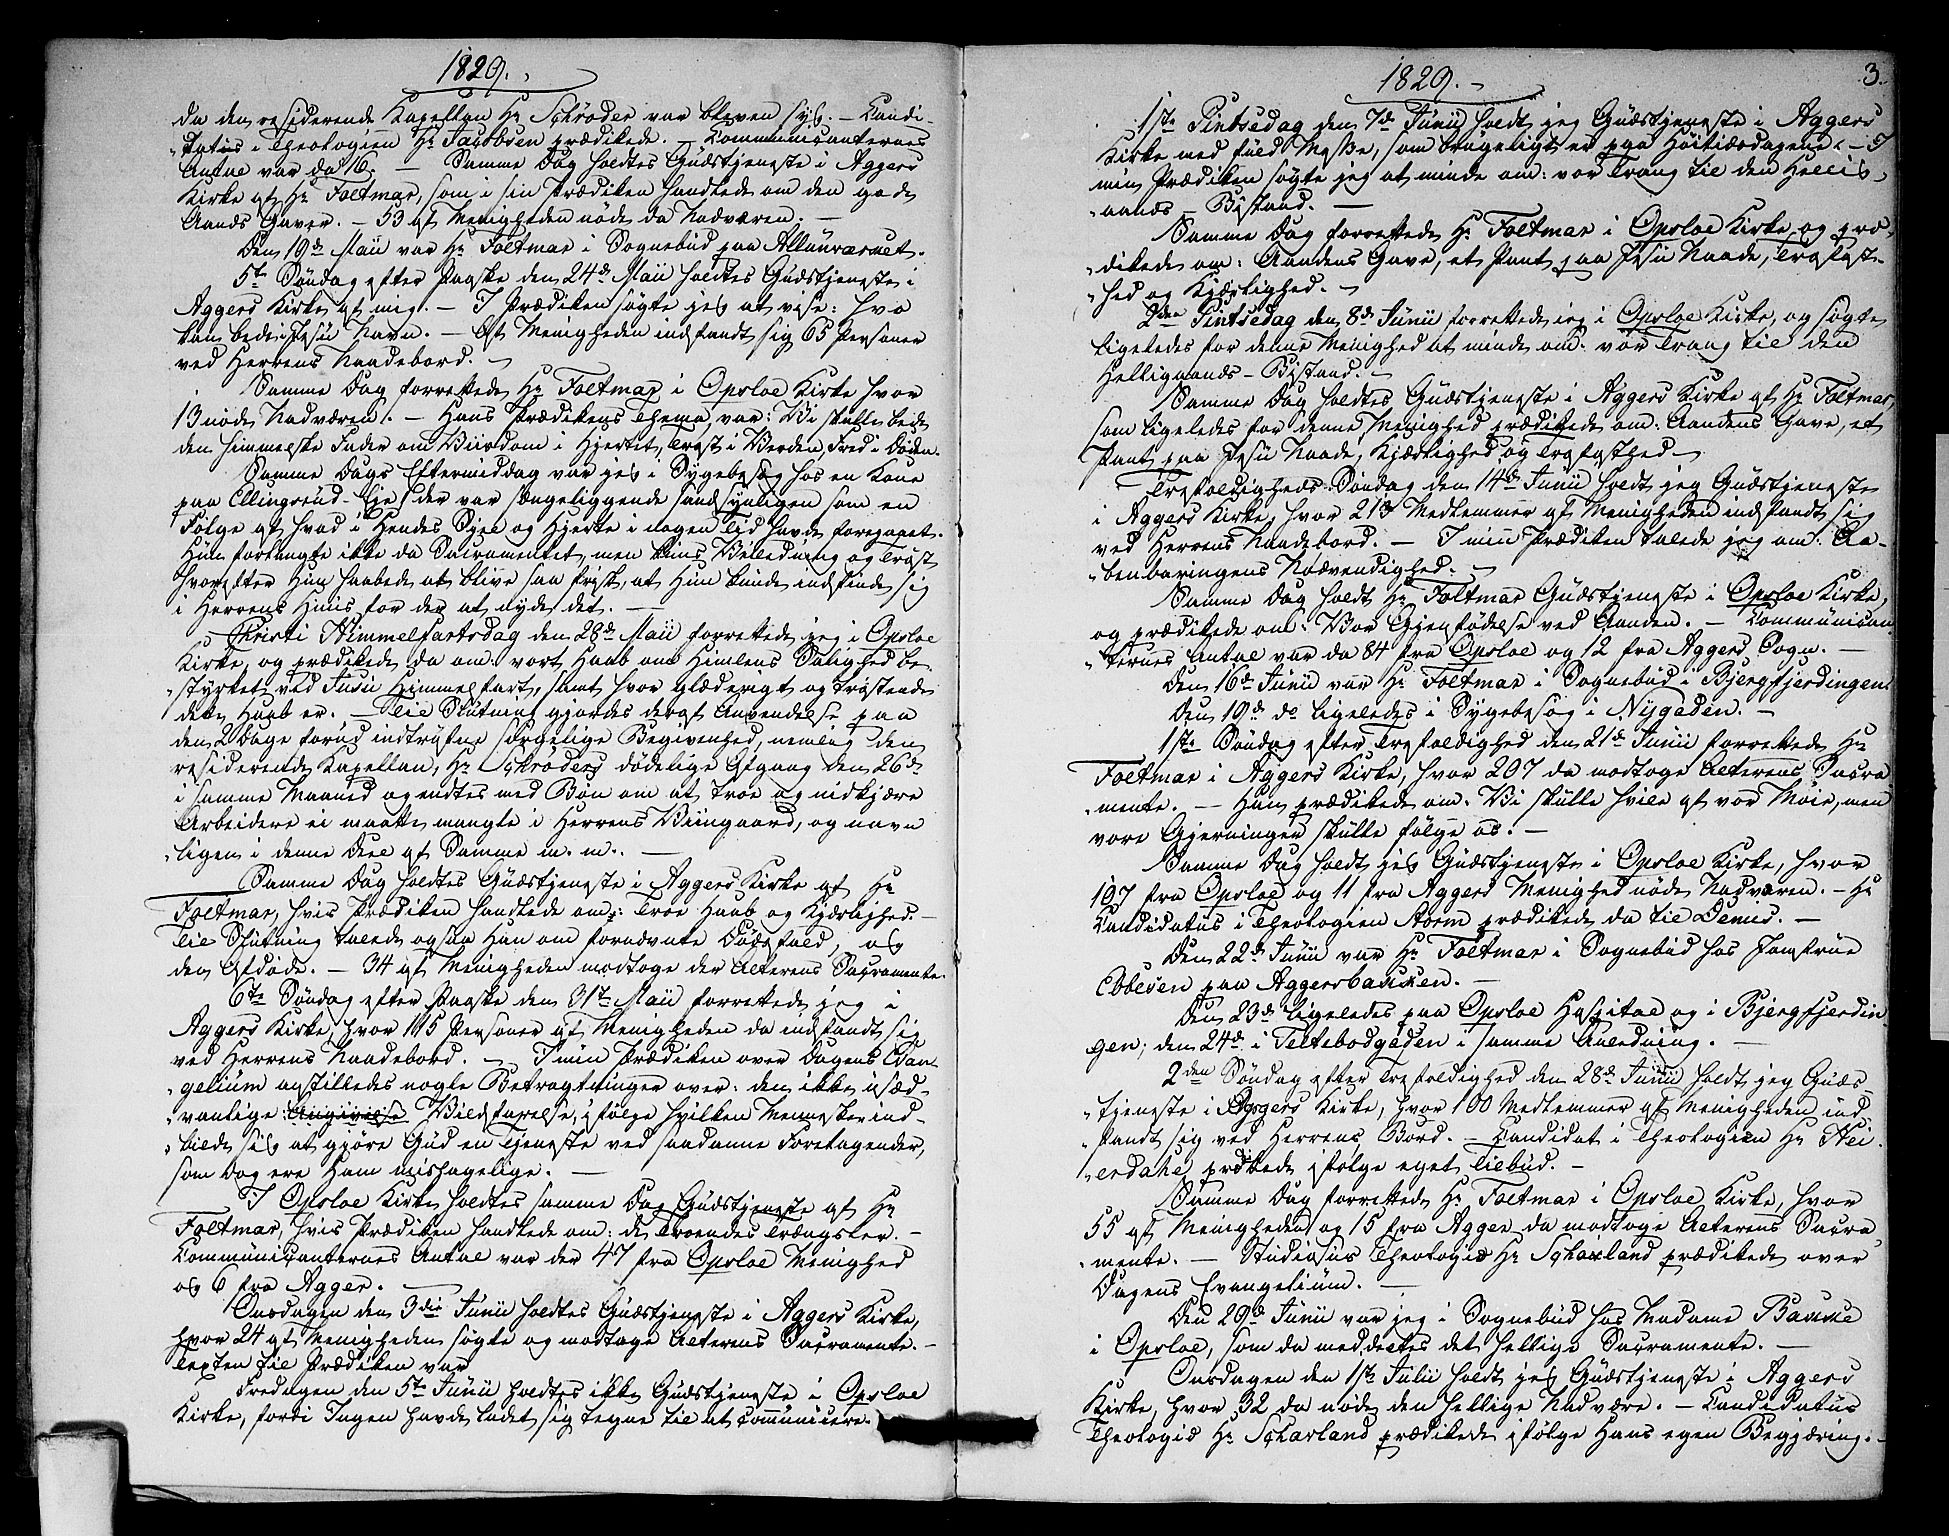 1829.
da den residerende Kapellan Hr Schrøder var bleven syg. – Candi-
datus i Theologien Hr Jacobsen prædikede. – Communicanternes
Antal var da 16. – Samme Dag holdtes Gudstjeneste i Aggers
Kirke af Hr Foltmar, som i sin Prædiken handlede om den gode
Aands Gaver. – 53 af Menigheden nøde da Nadveren. –
Den 19de Maii var Hr Foltmar i Sognebud paa Allunværket.
5te Søndag efter Paaske den 24de Maii holdtes Gudstjeneste i
Aggers Kirke af mig. – I Prædiken søgte jeg at vise: hva
kan bede i Jesu Navn. – Af Menigheden indfandt sig 65 Personer
ved Herrens Naadebord. –
Samme Dag forrettede Hr Foltmar i Opsloe Kirke hvor
13 nøde Nadværen. – Hans Prædikens Thema var: Vi skulle bede
den himmelske Fader om Viisdom i Hjertet, Trøst i Verden, Fred i Døden.
Samme Dags Eftermiddag var jeg i Sygebesøg hos en Kone
paa Ellingsrud-Eje der var sængeliggende sandsynligen som en
Følge af hvad i Hendes Sjæl og Hjerte i nogen Tid havde foregaaet.
Hun forlangte ikke da Sacramentet, men kuns Veiledning og Trøst
hvorefter Hun haabede at blive saa frisk, at Hun kunde indfinde sig
i Herrens Huus for der at nyde det. –
Christi Himmelfartsdag den 28de Maii forrettede jeg i Opsloe
Kirke, og prædikede da om: vort Haab om Himlens Salighed be-
styrket ved Jesu Himmelfart, samt hvor glæderigt og trøstende
dette Haab er. – Til Slutning gjordes deraf Anvendelse paa
den 2 Dage forud indtrufne sørgelige Begivenhed, nemlig den
residerende Kapellan, Hr Schrøders dødelige Afgang den 26de
i samme Maaned og endtes med Bøn om at troe og nidkjære
Arbeidere ei maatte mangle i Herrens Viingaard, og navn
ligen i denne Deel af Samme m. m. –
Samme Dag holdtes Gudstjeneste i Aggers Kirke af Hr
Foltmar, hvis Prædiken handlede om: Troe Haab og Kjærlighed. –
Til Slutning talede ogsaa Han om fornævnte Dødsfald, og
den Afdøde. – 34 af Menigheden modtoge der Alterens Sacramente.
6te Søndag efter Paaske den 31te Maii forrettede jeg i
Aggers Kirke, hvor 115 Personer af Menigheden da indfandt sig
ved Herrens Naadebord. – I min Prædiken over Dagens Evan-
gelium anstilledes nogle Betragtninger over: den ikke usæd-
vanlige Vildfarelse, ifølge hvilken Mennesker ind-
bilde sig at gjøre Gud en Tjeneste ved saadanne Foretagender,
som dog ere Ham mishagelige. –
I Opsloe Kirke holdtes samme Dag Gudstjeneste af Hr
Foltmar, hvis Prædiken handlede om: de Troendes Trængsler. –
Communicanternes Antal var der 47 fra Opsloe Menighed
og 6 fra Agger. –
Onsdagen den 3die Junii holdtes Gudstjeneste i Aggers Kirke,
hvor 24 af Menigheden søgte og modtoge Alterens Sacramente. –
Texten til Prædiken var
Fredagen den 5te Junii holdtes ikke Gudstjeneste i Opsloe
Kirke, fordi Ingen havde ladet sig tegne til at communicere.
1829.
3.
1ste Pintsedag den 7de Junii holdt jeg Gudstjeneste i Aggers
Kirke med fuld Messe, som brugeligt er paa Høitidsdagene. – I
min Prædiken søgte jeg at minde om: vor Trang til den Hellig-
aands-Bistand. –
Samme Dag forrettede Hr Foltmar i Opsloe Kirke og præ-
dikede om: Aandens Gave, et Pant paa Jesu Naade, Trofast-
hed og Kjærlighed. –
2den Pintsedag den 8de Junii forrettede jeg i Opsloe Kirke, og søgte
ligeledes for denne Menighed at minde om: vor Trang til den
Helligaands-Bistand. –
Samme Dag holdtes Gudstjeneste i Aggers Kirke af Hr Foltmar,
som ligeledes for denne Menighed prædikede om: Aandens Gave, et
Pant paa Jesu Naade, Kjærlighed og Trofasthed –
Trefoldigheds-Søndag den 14de Junii holdt jeg Gudstjeneste
i Aggers Kirke, hvor 213 Medlemmer af Menigheden indfandt sig
ved Herrens Naadebord. – I min Prædiken talede jeg om: Aa-
benbaringens Nødvendighed. –
Samme Dag holdt Hr Foltmar Gudstjeneste i Opsloe Kirke,
og prædikede om: Vor Gjenfødelse ved Aanden. – Communican-
ternes Antal var da 84 fra Opsloe og 12 fra Aggers Sogn. –
Den 16de Junii var Hr Foltmar i Sognebud i Bjergfjerdingen.
Den 19de do ligeledes i Sygebesøg i Nygaden. –
1ste Søndag efter Trefoldighed den 21de Junii forrettede Hr
Foltmar i Aggers Kirke, hvor 207 da modtoge Alterens Sacra
mente. – Han prædikede om: Vi skulle hvile af vor Møie, men
vore Gjerninger skulle følge os. –
Samme Dag holdt jeg Gudstjeneste i Opsloe Kirke, hvor
107 fra Opsloe og 11 fra Aggers Menighed nøde Nadveren. – Hr
Candidatus i Theologien Storm prædikede da til Demis. –
Den 22de Junii var Hr Foltmar i Sognebud hos Jomfrue
Ebbesen paa Aggersbakken. –
Den 23de ligeledes paa Opsloe Hospital og i Bjergfjerdin
gen; den 24de i Teltebodgaden i samme Anledning. –
2den Søndag efter Trefoldighed den 28de Junii holdt jeg Guds-
tjeneste i Aggers Kirke, hvor 100 Medlemmer af Menigheden ind
fandt sig ved Herrens Bord. – Candidat i Theologien Hr Hei
erdahl prædikede ifølge eget Tilbud. –
Samme Dag forrettede Hr Foltmar i Opsloe Kirke, hvor
55 af Menigheden og 15 fra Agger da modtoge Alterens Sacra
mente. – Studiosus Theologiæ Hr Scharland prædikede over
Dagens Evangelium. –
Den 29de Junii var jeg i Sognebud hos Madame Bakke
i Opsloe, som da meddeeltes det hellige Sacramente. –
Onsdagen den 1ste Julii holdt jeg Gudstjeneste i Aggers
Kirke, hvor 32 da nøde den hellige Nadvere. – Candidatus
Theologiæ Hr Scharland prædikede ifølge Hans egen Begjæring. –